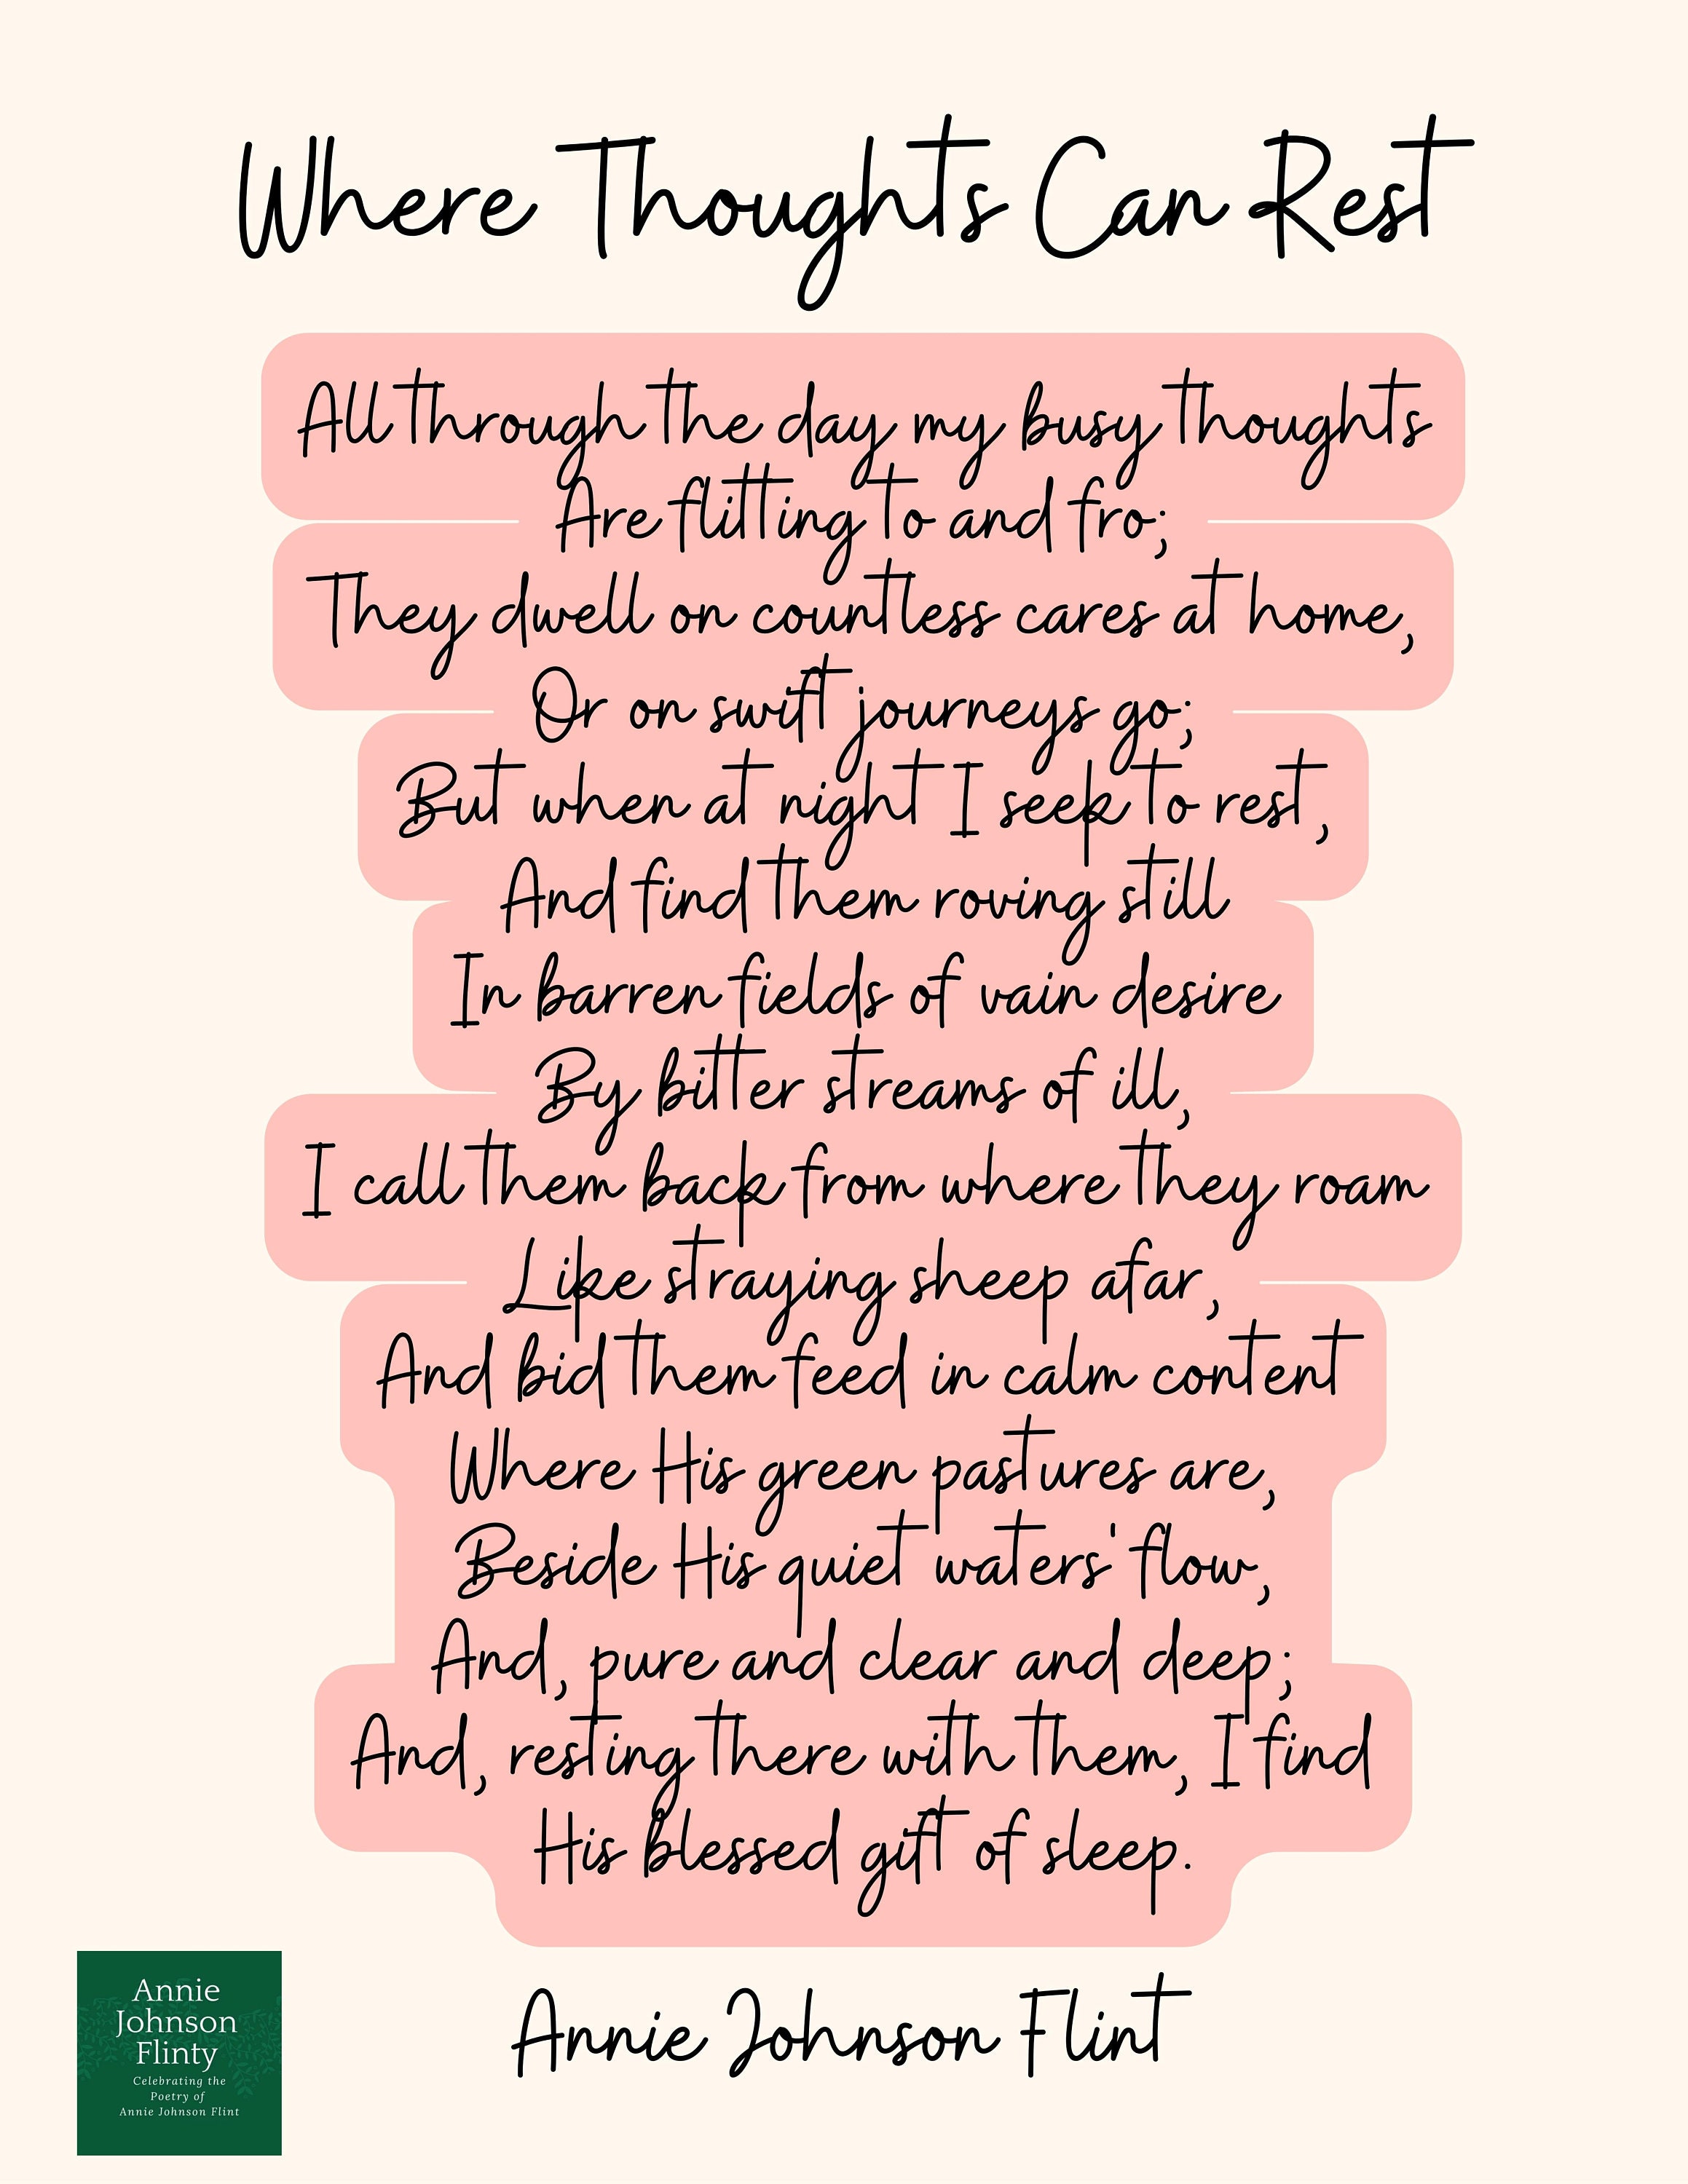 Where Thoughts Can Rest
All through the day my busy thoughts
Are flitting to and fro;
They dwell on countless cares at home,
Or on swift journeys go;
But when at night I seek to rest,
And find them roving still
In barren fields of vain desire
By bitter streams of ill,
I call them back from where they roam
Like straying sheep afar,
And bid them feed in calm content
Where His green pastures are,
Beside His quiet waters' flow,
And, pure and clear and deep;
And, resting there with them, I find
His blessed gift of sleep.
Annie Johnson Flint
Annie
Johnson
Flinty
Celebrating the
Poetry of
Annie Johnson Flint